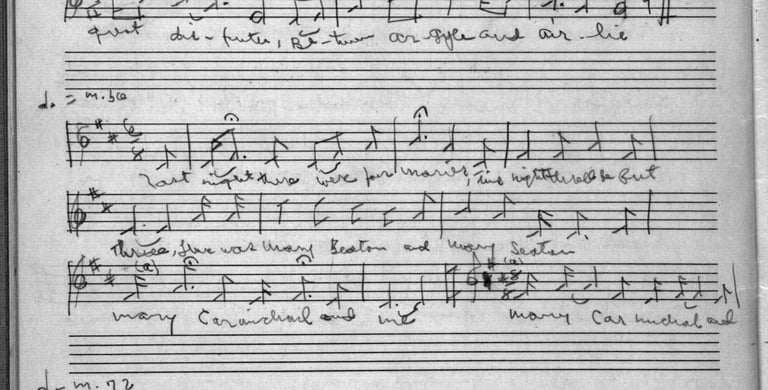 great dis-putes, Be-tween Ar-gyle and Air-lie
d. = m. 50
6 8 Last night there were four maries, this night there'll be but
three, there was mary Beaton and mary Seaton
mary Carmichael and me (a) mary Carmichael and
d = m. 72